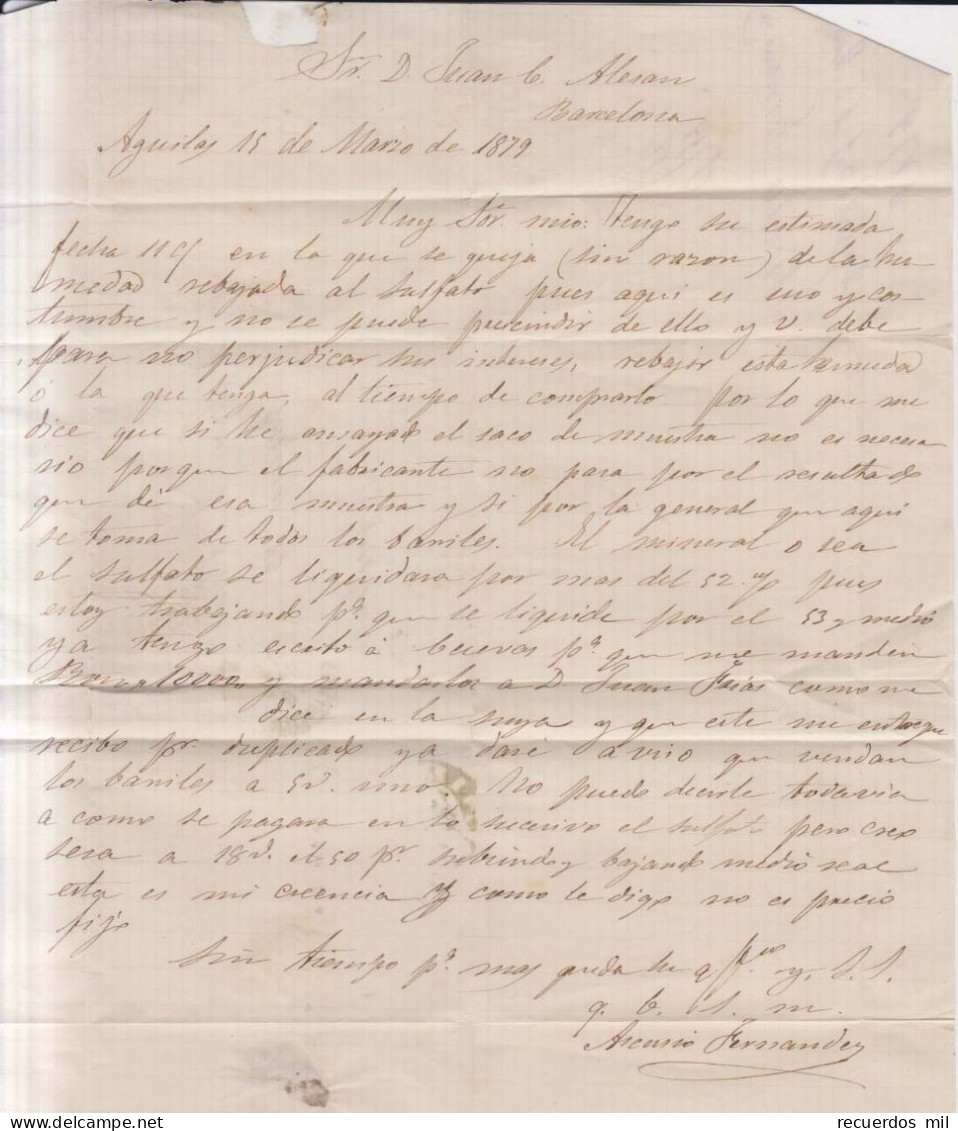 Sr. D. Juan C. Alesan
Barcelona
Aguilas 15 de Marzo de 1879
Muy Sór. mio: Tengo su estimada
fecha 11 en la que se queja (sin razon) de la hu
medad rebajada al sulfato pues aqui es uso y cos
tumbre y no se puede prescindir de ello y V. debe
para no perjudicar sus intereses, rebajar esta humeda
ó la que tenga, al tiempo de comprarlo. Por lo que me
dice que si he ensayado el saco de muestra no es necesa
rio porque el fabricante no pasa por el resultado
que dé esa muestra y si por la general que aqui
se toma de todos los barriles. El mineral o sea
el sulfato se liquidara por mas del 52 % pues
estoy trabajando pª. que se liquide por el 53 y medio
ya tengo escrito á Cuevas pª. que me manden
10000 y mandarlos a D. Juan Frias como me
dice en la suya y que este me entregue
recibo pr. duplicado ya daré aviso que vendan
los barriles a 5 uno. No puedo decirle todavia
a como se pagara en lo sucesivo el sulfato pero creo
sera a 18 el 50 pr. subiendo y bajando medio real
esta es mi creencia y como le digo no es precio
fijo
Sin tiempo pª. mas queda su y S. S.
q. b. s. m.
Ascensio Fernandez
recuerdos mil